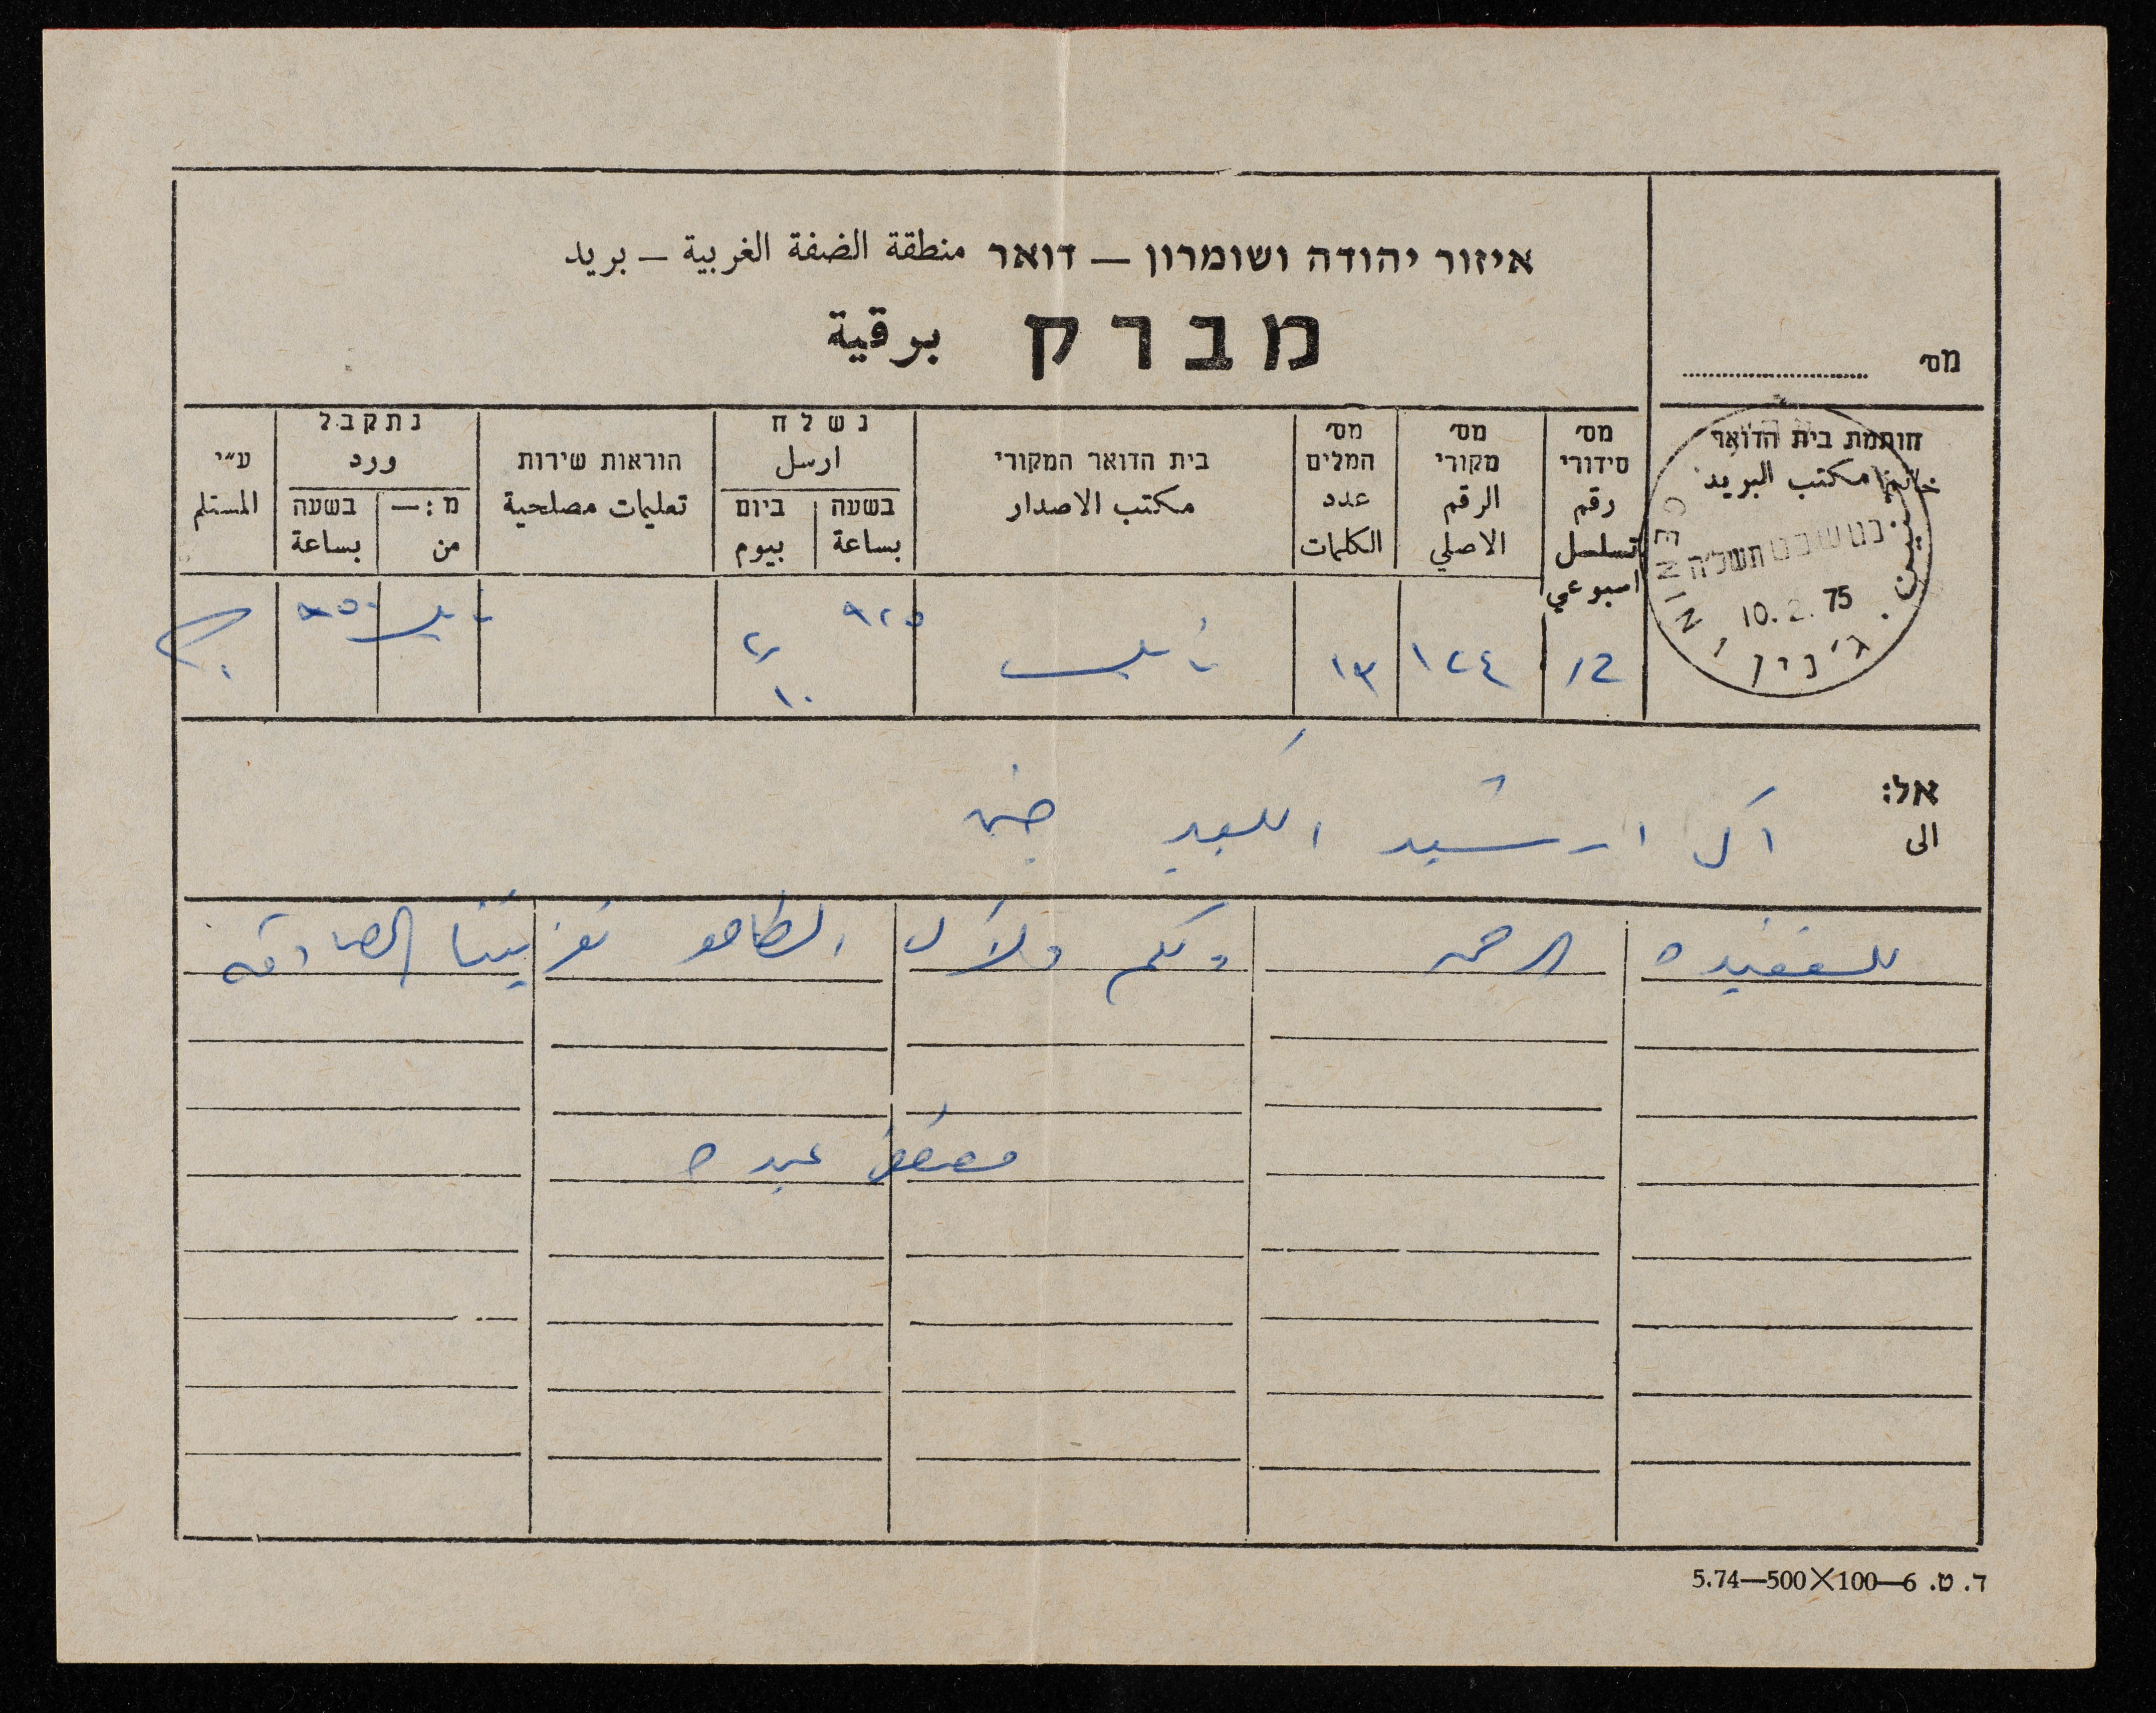 איזור יהודה ושומרון — דואר منطقة الضفة الغربية — بريد
מברק برقية
מס׳
חותמת בית הדואר
خاتم مكتب البريد
מס׳ סידורי
رقم تسلسل اسبوعي
מס׳ מקורי
الرقم الاصلي
מס׳ המלים
عدد الكلمات
בית הדואר המקורי
مكتب الاصدار
נשלח
ارسل
בשעה
بساعة
ביום
بيوم
הוראות שירות
تعليمات مصلحية
נתקבל
ورد
מ:—
من
בשעה
بساعة
ע״י
المستلم
JENIN جنين ג׳נין
כט שבט תשל״ה
10.2.75
12
١٢٤
١٣
نابلس
٩٢٥
٢
١٠
نابلس
٩٥٠
אל:
الى
آل ارشيد الكفير جنين
للفقيده الرحمه ولكم ولآل تعزيتنا الصادقه
مصطفى عبده
ד. ט. 6—100×500—5.74